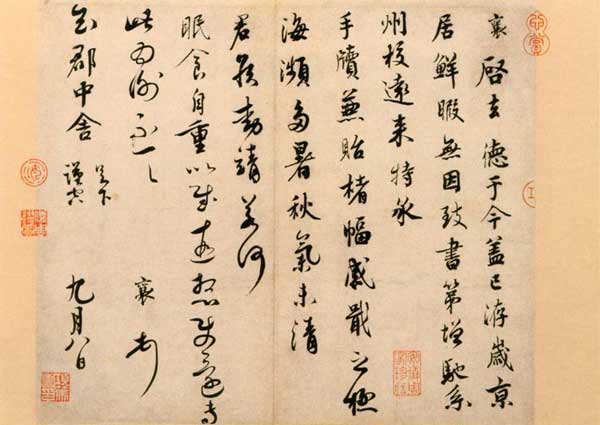 襄啓去德于今蓋已洊歲京
居鮮暇無因致書第增馳系
州校遠来特承
手牘兼貽楮幅感戢之極
海瀕多暑秋氣未清
君侯動靜若何
眠食自重以慰遠想使還專
此為謝不一一 襄頓首
知郡中舍足下謹空 九月八日